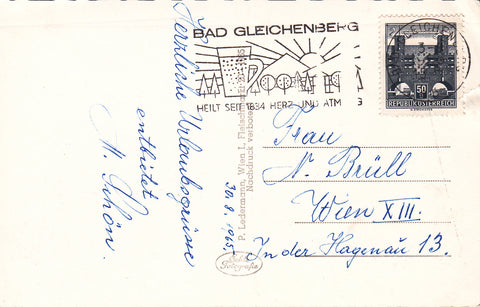 Herzliche Urlaubsgrüsse
entbietet
30.8.1965.
BAD GLEICHENBERG
HEILT SEIT 1834 HERZ- UND ATM
GLEICHEN
50
REPUBLIK ÖSTERREICH
P. Ledermann, Wien I, Fleischmarkt
Nachdruck verboten
Echte
Fotografie
Frau
N. Brüll
Wien XIII.
In der Hagenau 13.